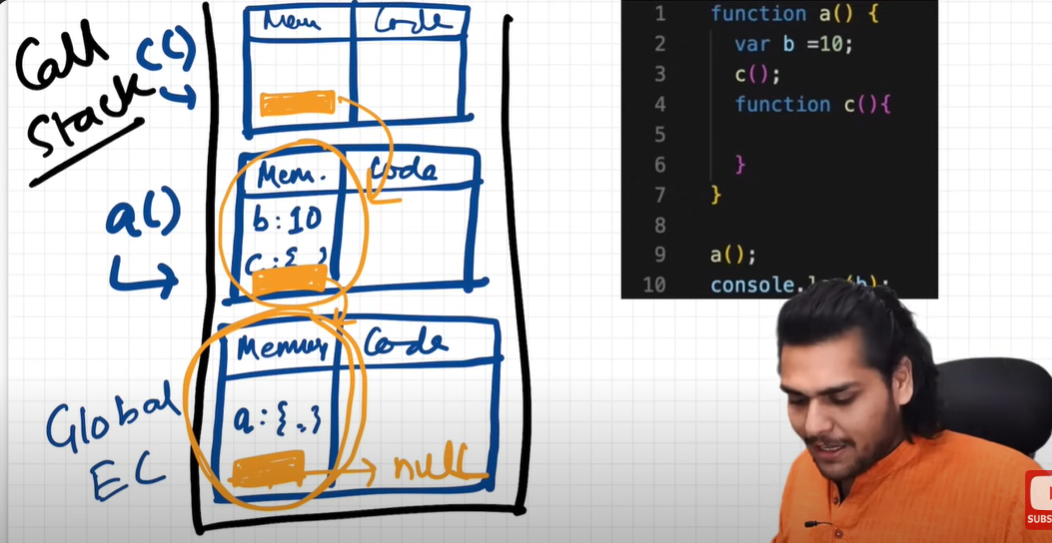 Call
Stack
c()
Mem
Code
a()
Mem.
Code
b:10
c:{ }
Global
EC
Memory
Code
a:{.}
null
1 function a() {
2 var b =10;
3 c();
4 function c(){
5
6 }
7 }
8
9 a();
10 console. (b);
SUBS